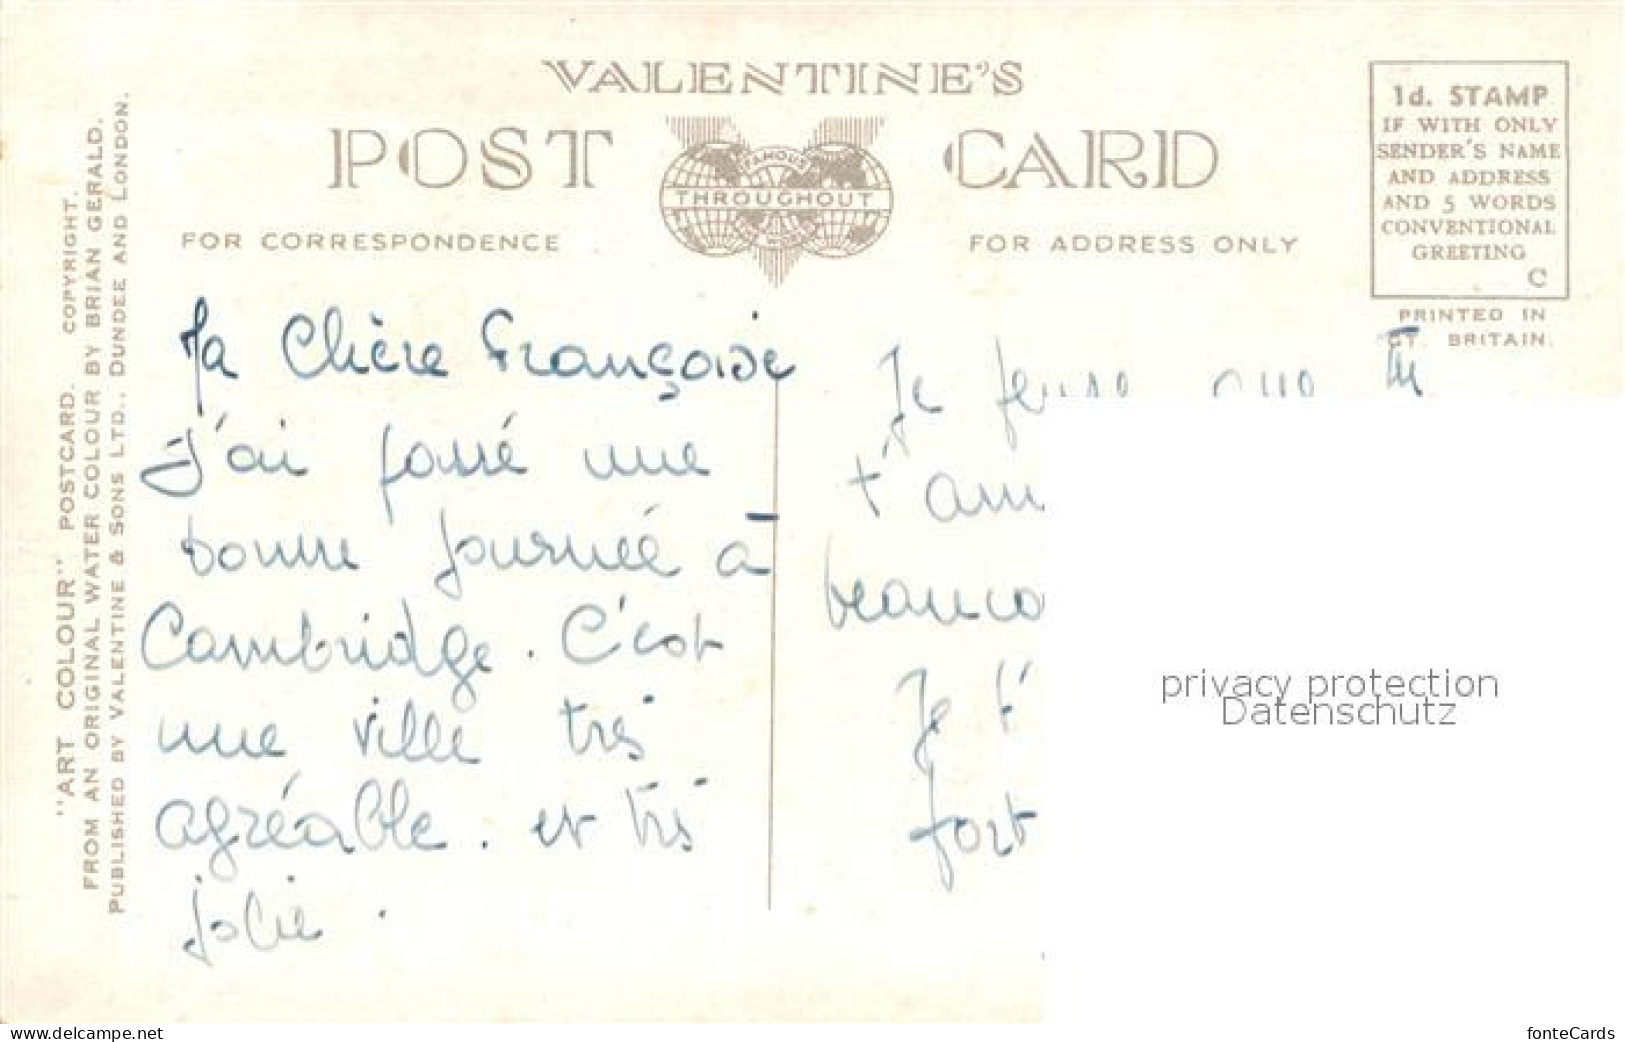 VALENTINE'S
POST CARD
FAMOUS
THROUGHOUT
FOR CORRESPONDENCE
FOR ADDRESS ONLY
1d. STAMP
IF WITH ONLY
SENDER'S NAME
AND ADDRESS
AND 5 WORDS
CONVENTIONAL
GREETING
C
PRINTED IN
GT. BRITAIN.
"ART COLOUR" POSTCARD. COPYRIGHT.
FROM AN ORIGINAL WATER COLOUR BY BRIAN GERALD.
PUBLISHED BY VALENTINE & SONS LTD., DUNDEE AND LONDON.
Ma Chère Françoise
J'ai passé une
bonne journée à
Cambridge. C'est
une ville très
agréable. et très
jolie.
Je pense que tu
t'am
beauco
Je t'
fort
privacy protection
Datenschutz
www.delcampe.net
fonteCards